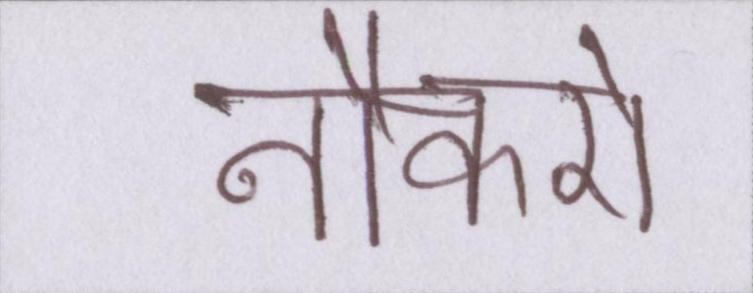 नौकरो